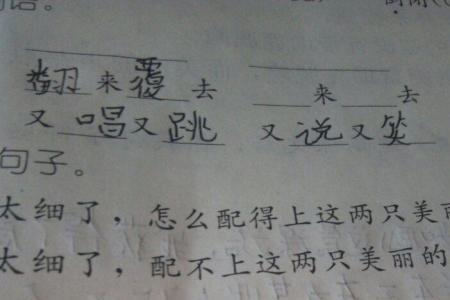 语。
翻来覆去 ____来____去
又唱又跳 又说又笑
句子。
太细了，怎么配得上这两只美丽
太细了，配不上这两只美丽的